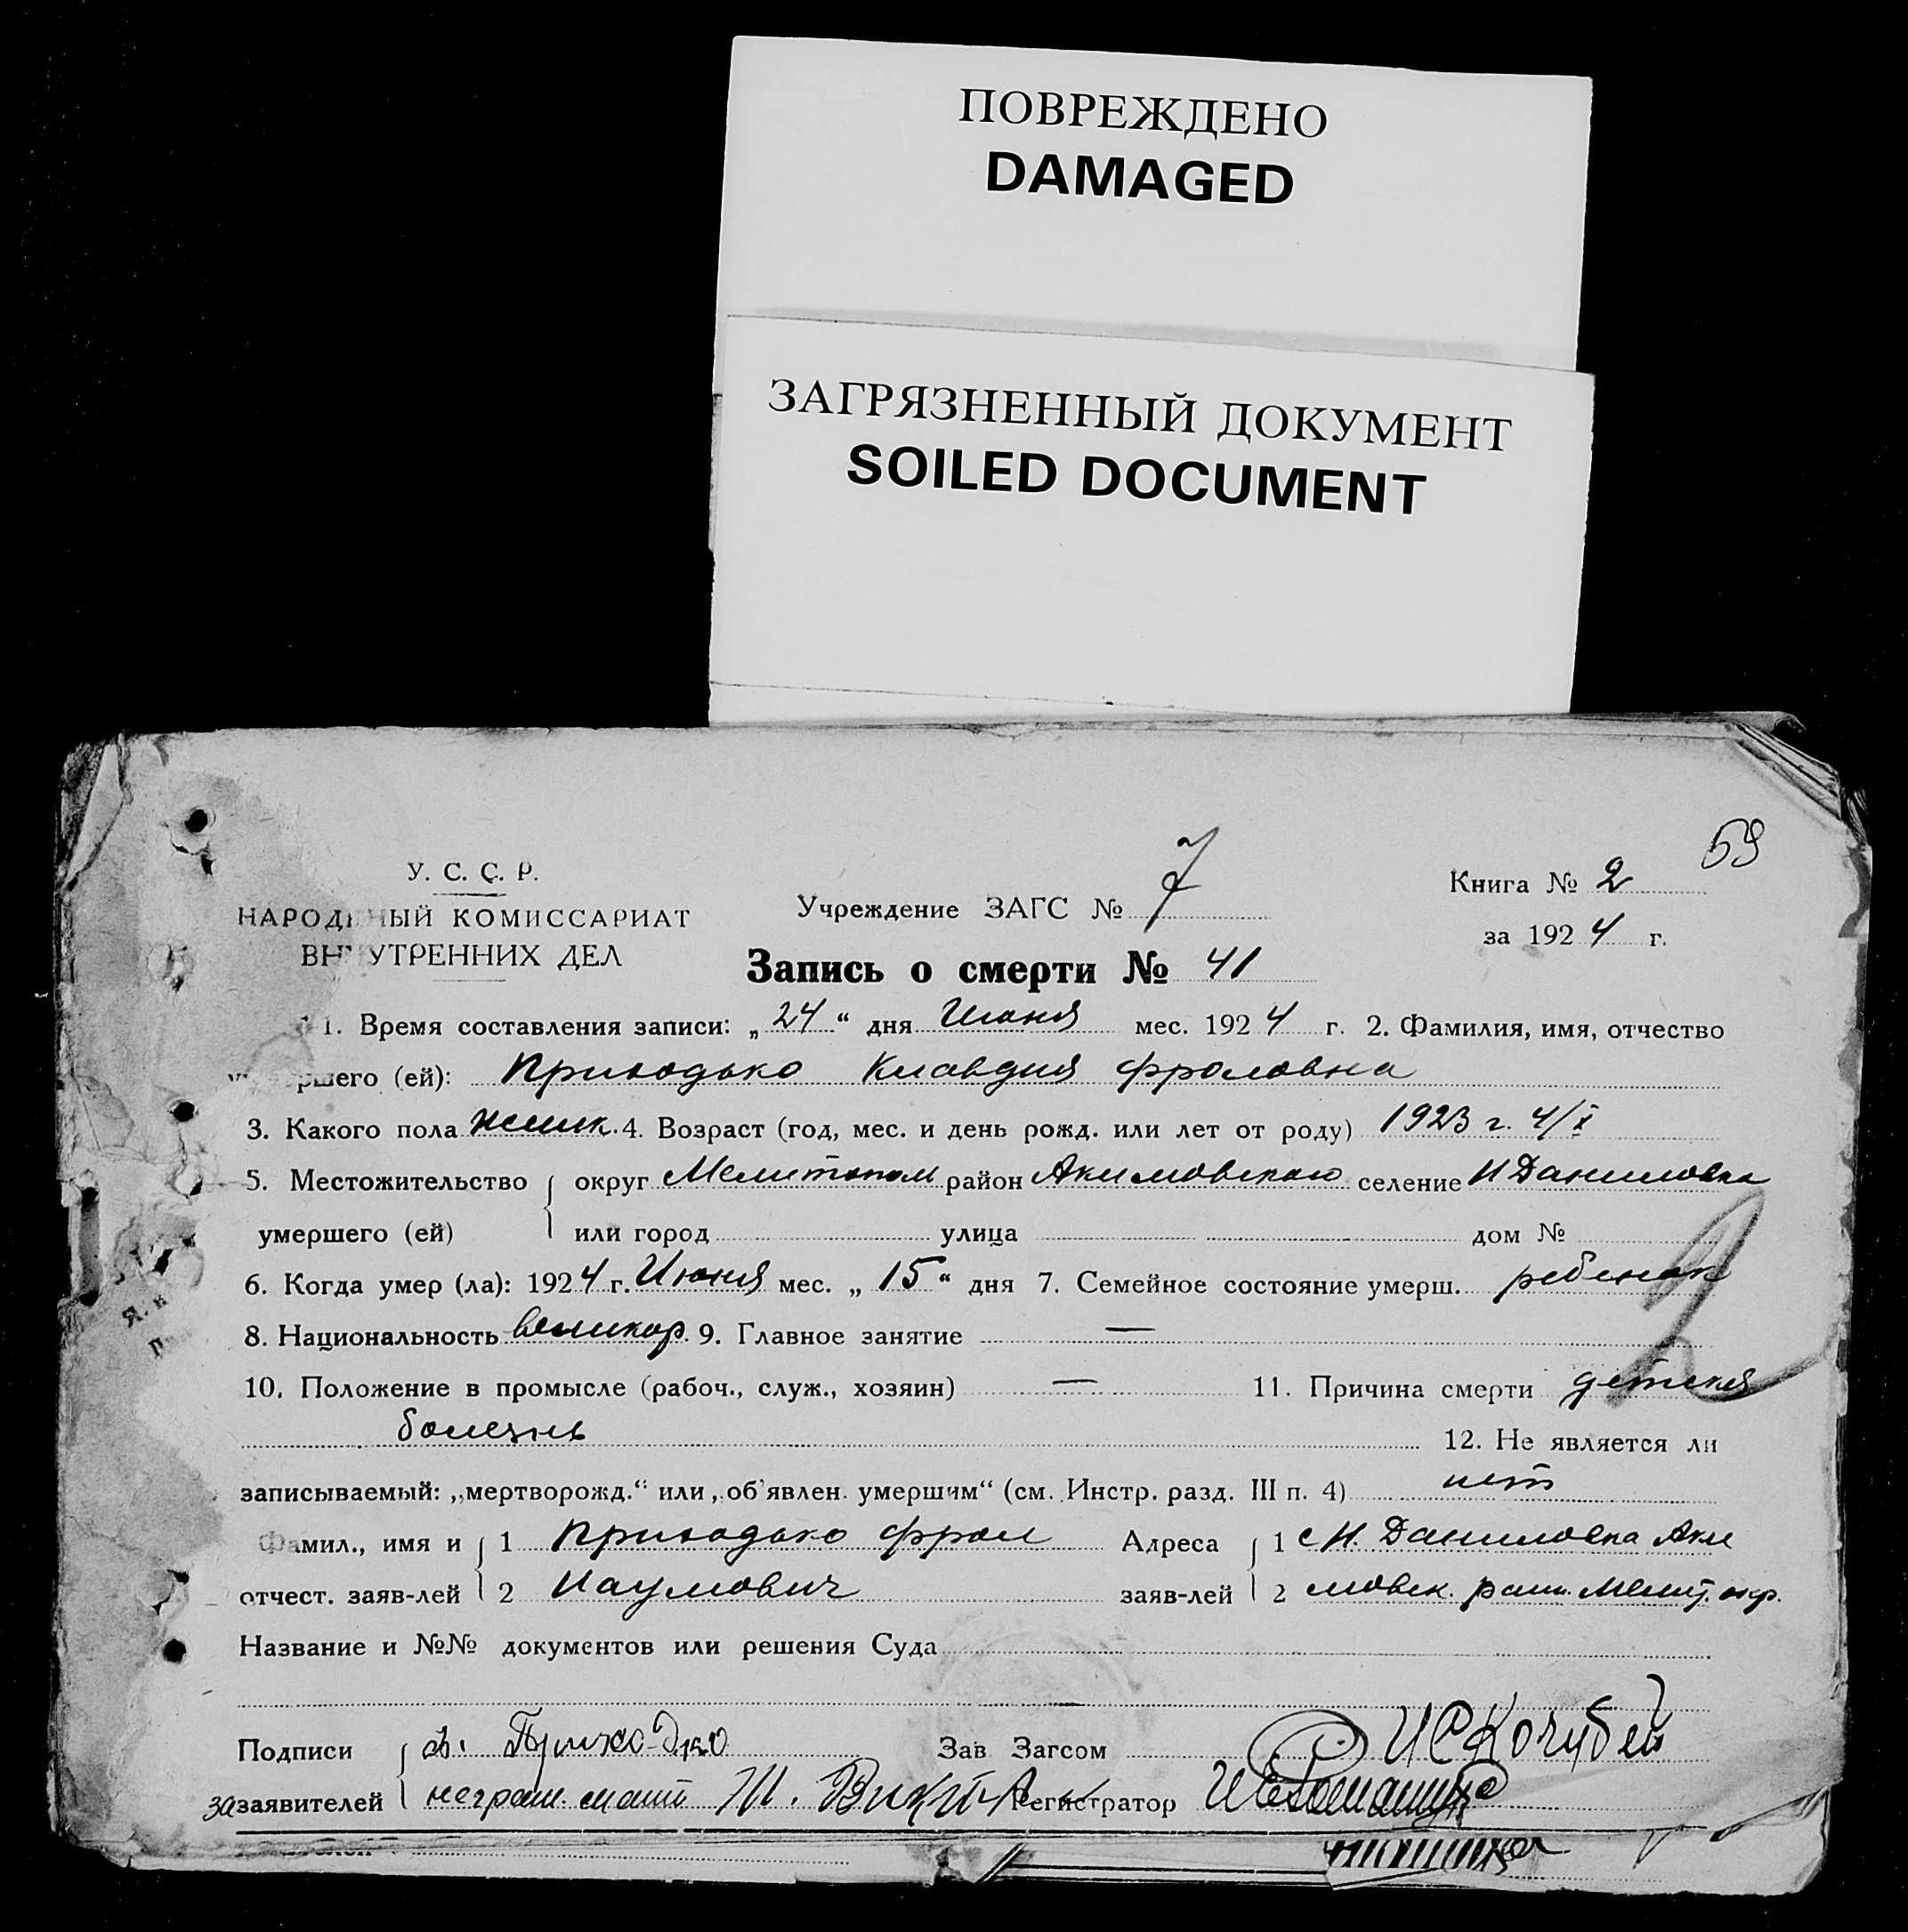 ПОВРЕЖДЕНО
DAMAGED
ЗАГРЯЗНЕННЫЙ ДОКУМЕНТ
SOILED DOCUMENT
69
У. С. С. Р.
НАРОДНЫЙ КОМИССАРИАТ
ВНУТРЕННИХ ДЕЛ
Учреждение ЗАГС № 7
Книга № 2
за 1924 г.
Запись о смерти № 41
1. Время составления записи: „24“ дня Июня мес. 1924 г. 2. Фамилия, имя, отчество
умершего (ей): Приходько Клавдия Фроловна
3. Какого пола женск. 4. Возраст (год, мес. и день рожд. или лет от роду) 1923 г. 4/X
5. Местожительство округ Мелитопол район Акимовского селение Н Даниловка
умершего (ей) или город улица дом №
6. Когда умер (ла): 1924 г. Июня мес. „15“ дня 7. Семейное состояние умерш. ребенок
8. Национальность великор. 9. Главное занятие —
10. Положение в промысле (рабоч., служ., хозяин) — 11. Причина смерти детская
болезнь 12. Не является ли
записываемый: „мертворожд.“ или „об'явлен. умершим“ (см. Инстр. разд. III п. 4) нет
Фамил., имя и 1 Приходько Фрол Адреса 1 с Н. Даниловка Аки
отчест. заяв-лей 2 Наумович заяв-лей 2 мовск. райн. Мелит. окр.
Название и №№ документов или решения Суда
Подписи Приходько Зав Загсом Кочубей
за заявителей неграм. Регистратор